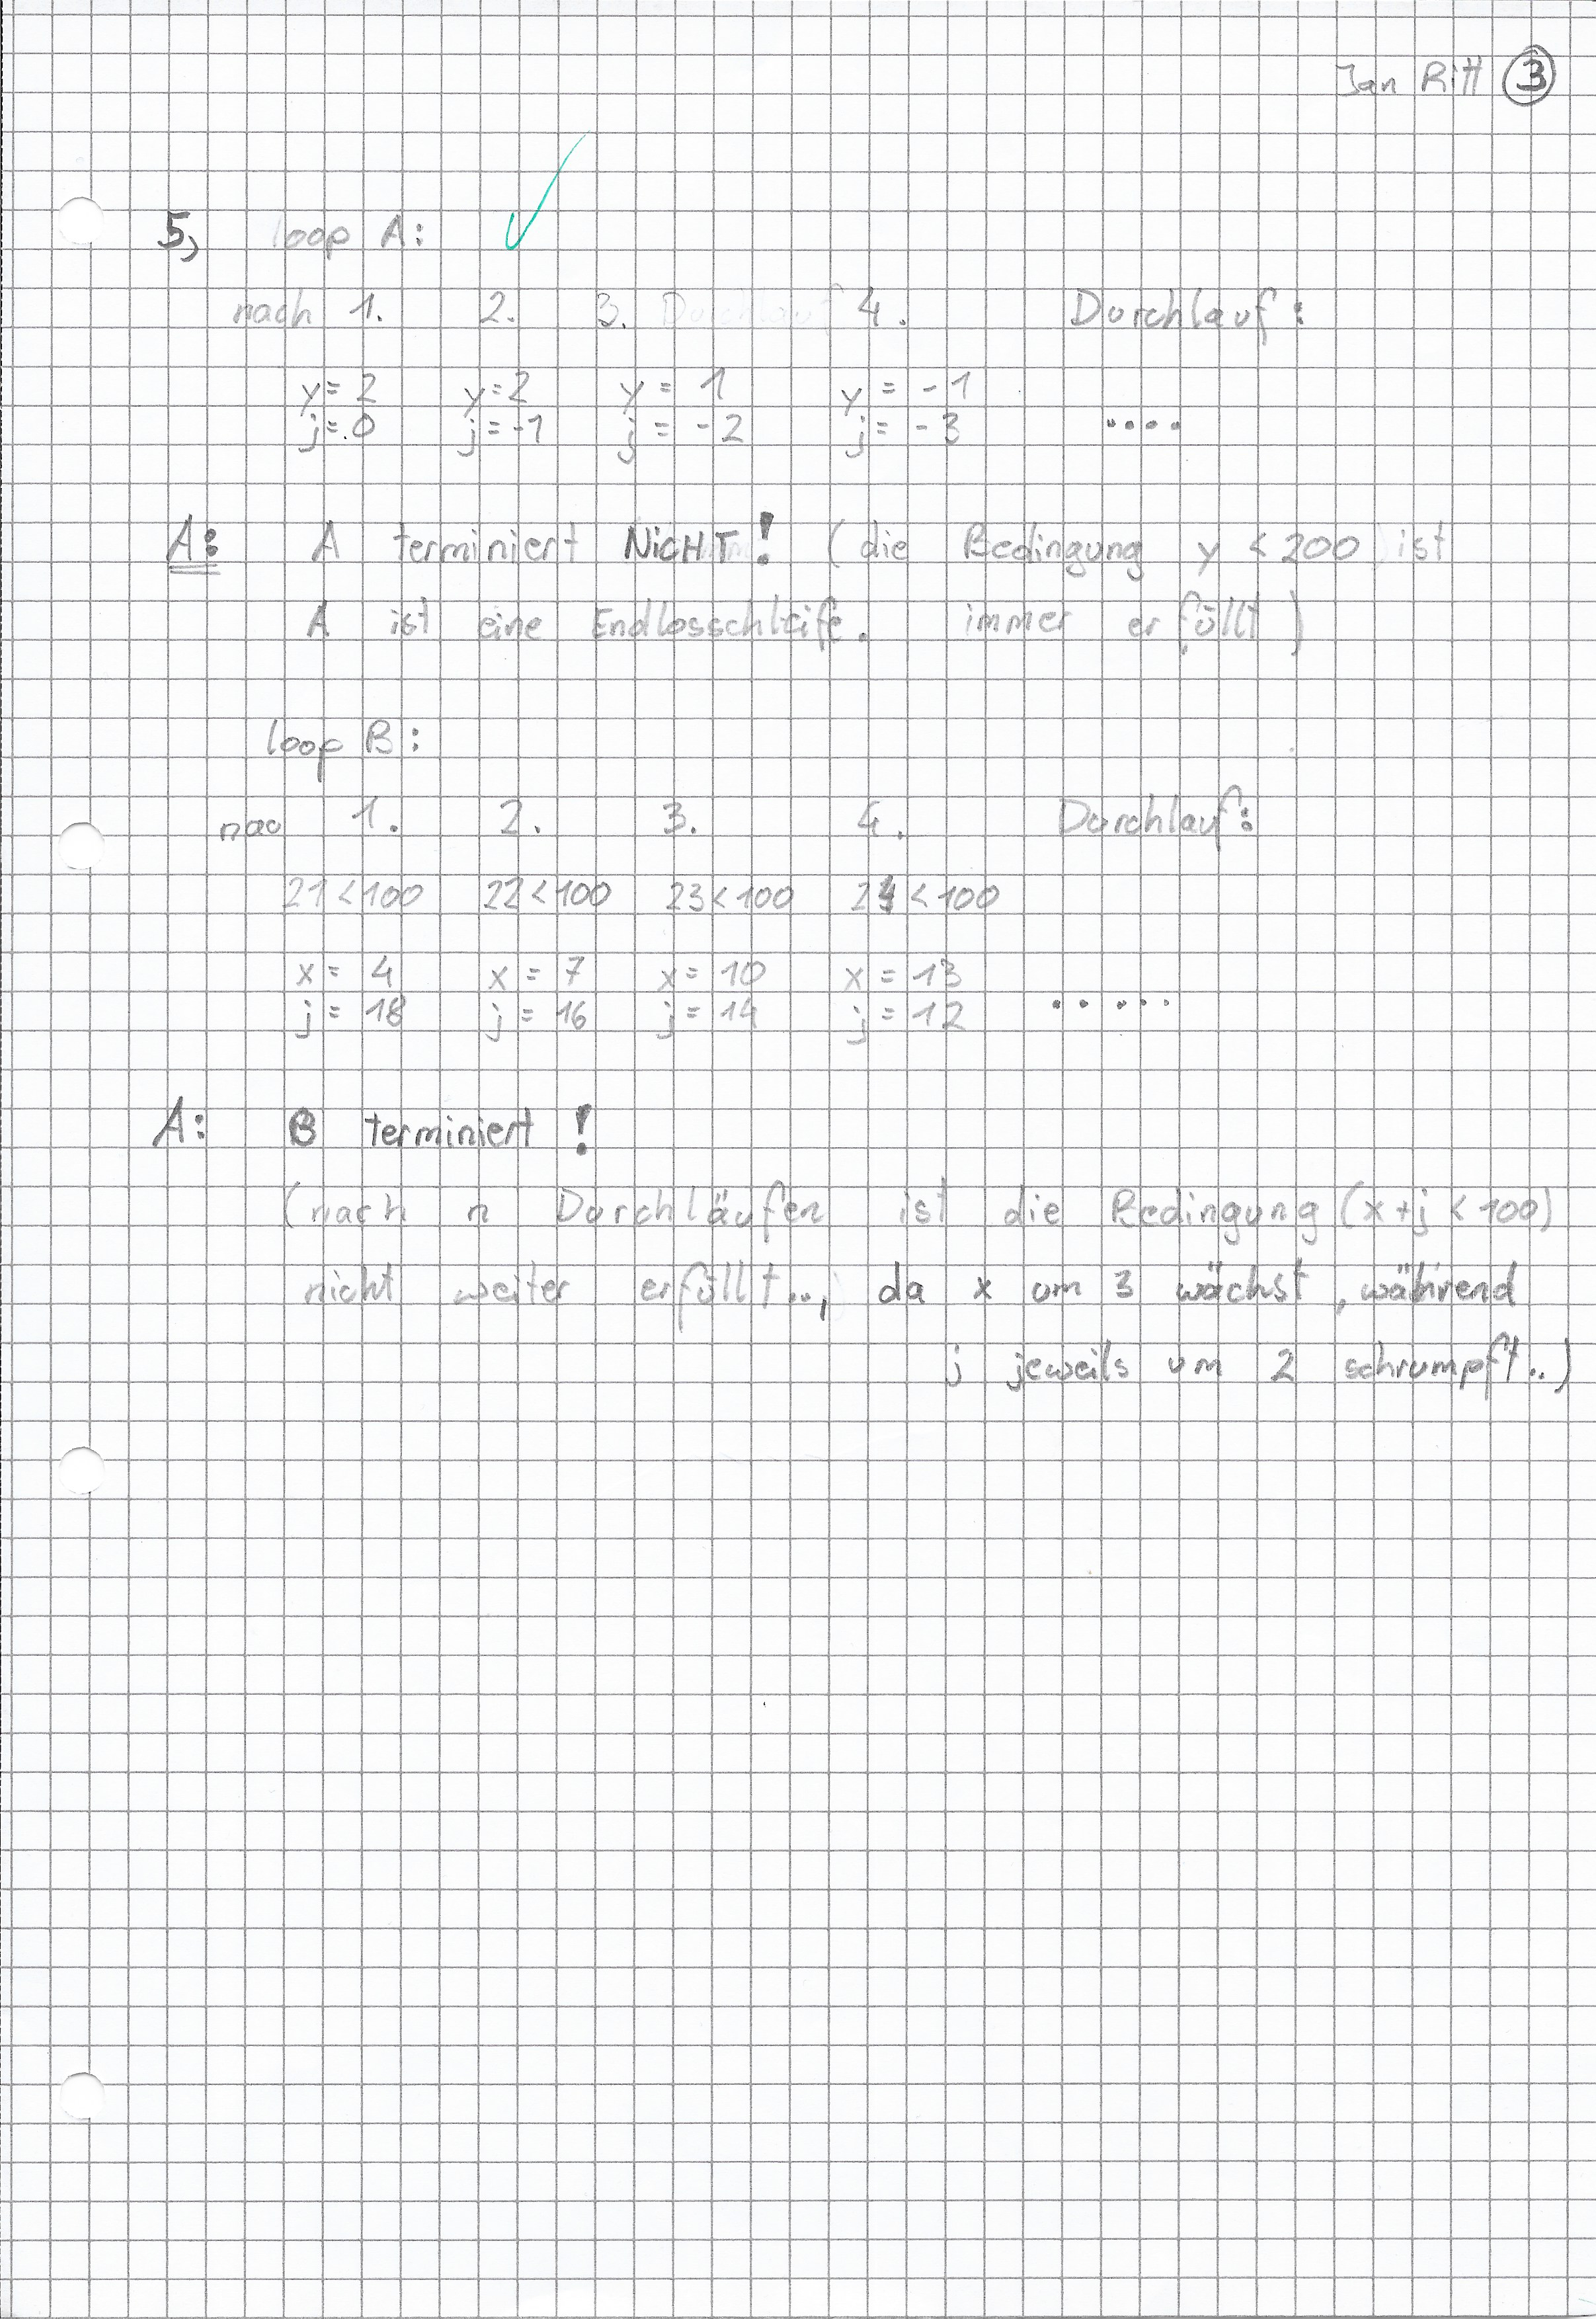 Jan Ritt 3
5, loop A:
nach 1. 2. 3. Durchlauf 4. Durchlauf:
y=2 y=2 y = 1 y = -1
j=0 j=-1 j = -2 j = -3 ....
A: A terminiert NICHT! (die Bedingung y < 200 ist
A ist eine Endlosschleife. immer erfüllt)
loop B:
nac 1. 2. 3. 4. Durchlauf:
21<100 22<100 23<100 24<100
x = 4 x = 7 x = 10 x = 13
j = 18 j = 16 j = 14 j = 12 .....
A: B terminiert!
(nach n Durchläufen ist die Bedingung (x+j<100)
nicht weiter erfüllt.., da x um 3 wächst, während
j jeweils um 2 schrumpft..)